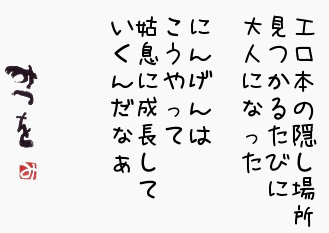 エロ本の隠し場所
見つかるたびに
大人になった
にんげんは
こうやって
姑息に成長して
いくんだなぁ
かつを
み